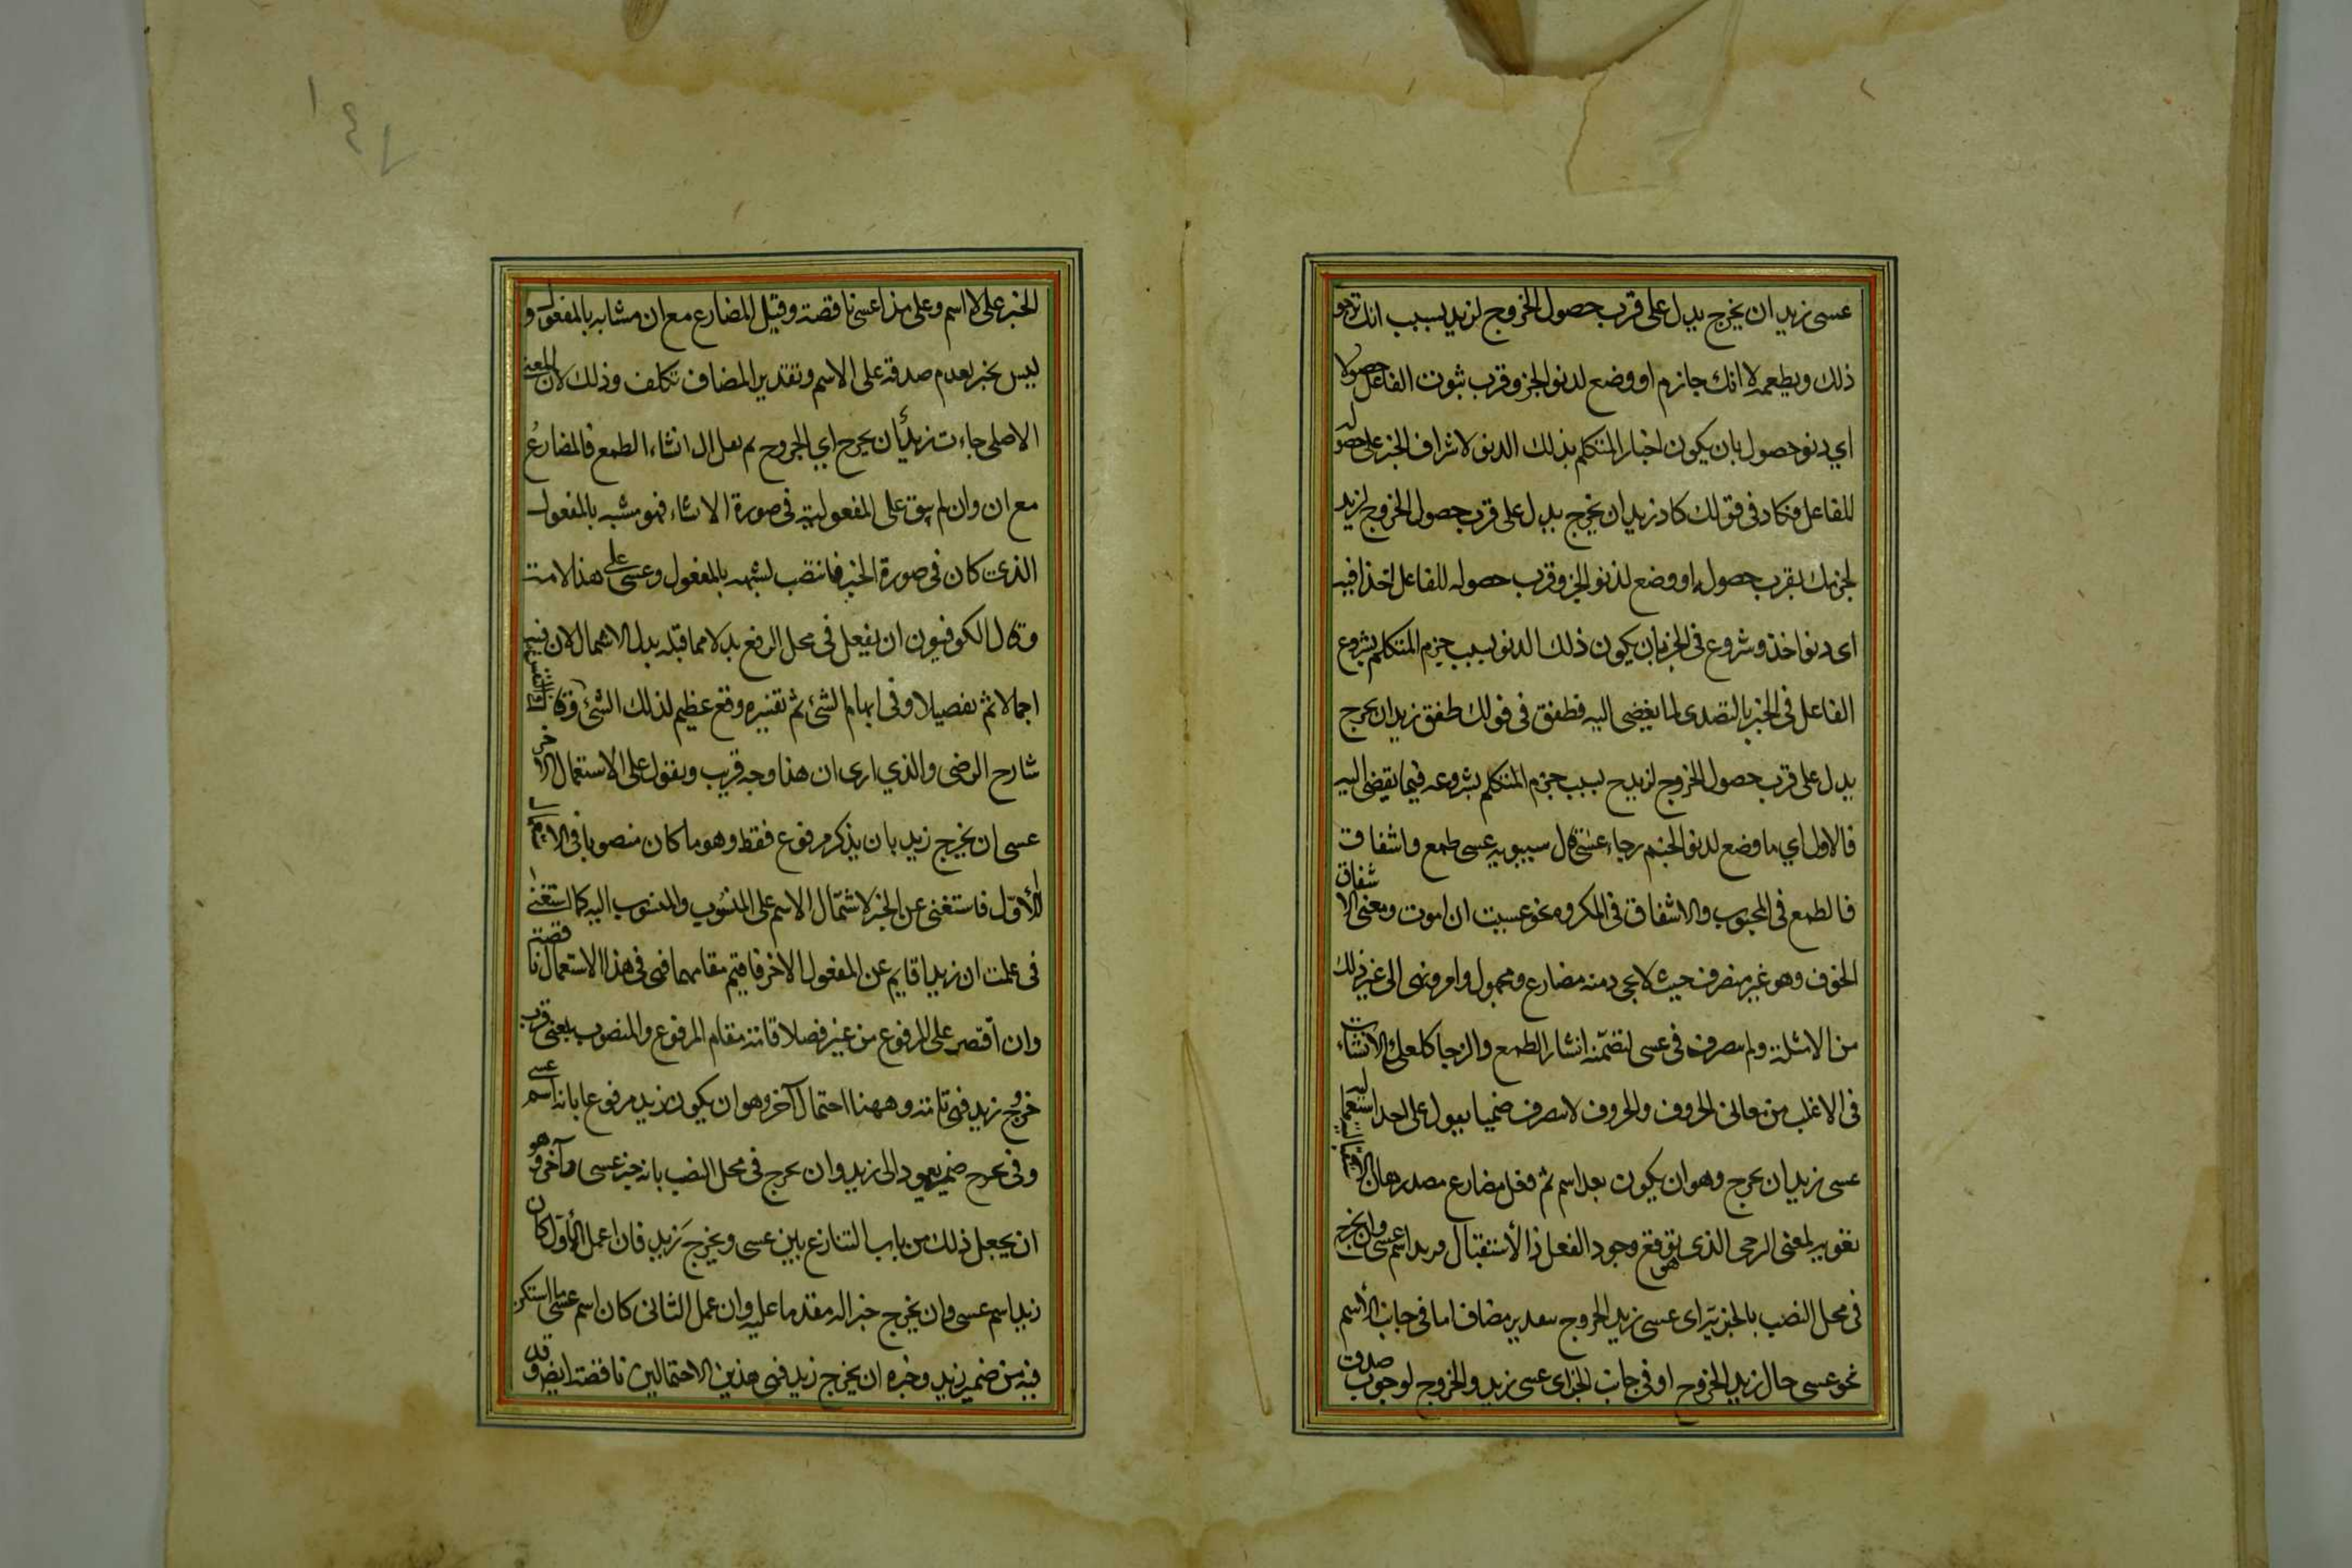 عسى زيد ان يخرج يدل على قرب حصول الخروج لزيد بسبب انك ترجو
ذلك ويطعمه لا انك جازم او وضع لدنو الخبر وقرب ثبوت الفاعل حصولا
اي دنو حصول بان يكون اخبار المتكلم بذلك الدنو لاشراف الخبر على حصوله
للفاعل فكاد في قولك كاد زيد ان يخرج يدل على قرب حصول الخروج لزيد
لجزمك بقرب حصوله او وضع لدنو الخبر وقرب حصوله للفاعل اخذا فيه
اى دنو اخذ وشروع في الخبر بان يكون ذلك الدنو بسبب جزم المتكلم بشروع
الفاعل في الخبر بالتصدى لما يفضى اليه فطفق في قولك طفق زيد ان يخرج
يدل على قرب حصول الخروج لزيد ح بسبب جزم المتكلم بشروعه فيما يفضى اليه
فالاول اي ما وضع لدنو الخبر رجاء عسى قال سيبويه عسى طمع واشفاق
فالطمع في المحبوب والاشفاق في المكروه نحو عسيت ان اموت ومعنى الاشفاق
الخوف وهو غير متصرف حيث لا يجىء منه مضارع ومجهول وامر ونهى الى غير ذلك
من الامثلة ولم يتصرف في عسى لتضمنه انشاء الطمع والرجا كلعل والانشاءات
في الاغلب من معانى الحروف والحروف لا يتصرف فيها يقول على احد استعماليه
عسى زيد ان يخرج وهو ان يكون بعد اسم ثم فعل مضارع مصدر بان الاستقبالية
تقوية لمعنى الترجى الذى هو توقع وجود الفعل في الاستقبال فزيد اسم عسى وان يخرج
في محل النصب بالخبرية اى عسى زيد الخروج بتقدير مضاف اما في جانب الاسم
نحو عسى حال زيد الخروج او في جانب الخبر اى عسى زيد ذا الخروج لوجوب صدق
الخبر على الاسم وعلى هذا عسى ناقصة وقيل المضارع مع ان مشابه بالمفعول و
ليس بخبر لعدم صدقه على الاسم وتقدير المضاف تكلف وذلك لان المعنى
الاصلى جاءت زيد ان يخرج اي الخروج ثم نقل الى انشاء الطمع فالمضارع
مع ان وان لم يبق على المفعولية في صورة الانشاء فهو مشبه بالمفعول
الذى كان في صورة الخبر فانتصب لشبهه بالمفعول وعسى على هذا لامت
وقال الكوفيون ان يفعل في محل الرفع بدلا مما قبله بدل الاشتمال لان فيه
اجمالا ثم تفصيلا وفي ابهام الشئ ثم تفسيره وقع عظيم لذلك الشئ وقال
شارح الرضى والذي ارى ان هذا وجه قريب ويقول على الاستعمال الاخر
عسى ان يخرج زيد بان يذكر مرفوع فقط وهو ما كان منصوبا في الاستعمال
الاول فاستغنى عن الخبر لاشتمال الاسم على المنسوب والمنسوب اليه كما استغنى
في علمت ان زيدا قايم عن المفعول الاخر فاقيم مقامهما فهى في هذا الاستعمال ناقصة
وان اقتصر على المرفوع من غير فصل لا قامته مقام المرفوع والمنصوب بمعنى قرب
خروج زيد فهى تامة وههنا احتمال آخر وهو ان يكون زيد مرفوعا بانه اسم عسى
وفي يخرج ضمير يعود الى زيد وان يخرج في محل النصب بانه خبر عسى وآخر وهو
ان يجعل ذلك من باب التنازع بين عسى ويخرج زيد فان اعمل الاول كان
زيد اسم عسى وان يخرج خبرا له مقدما عليه وان عمل الثانى كان اسم عسى ما استكن
فيه من ضمير زيد وخبره ان يخرج زيد فهى هذين الاحتمالين ناقصة ايضا وقد